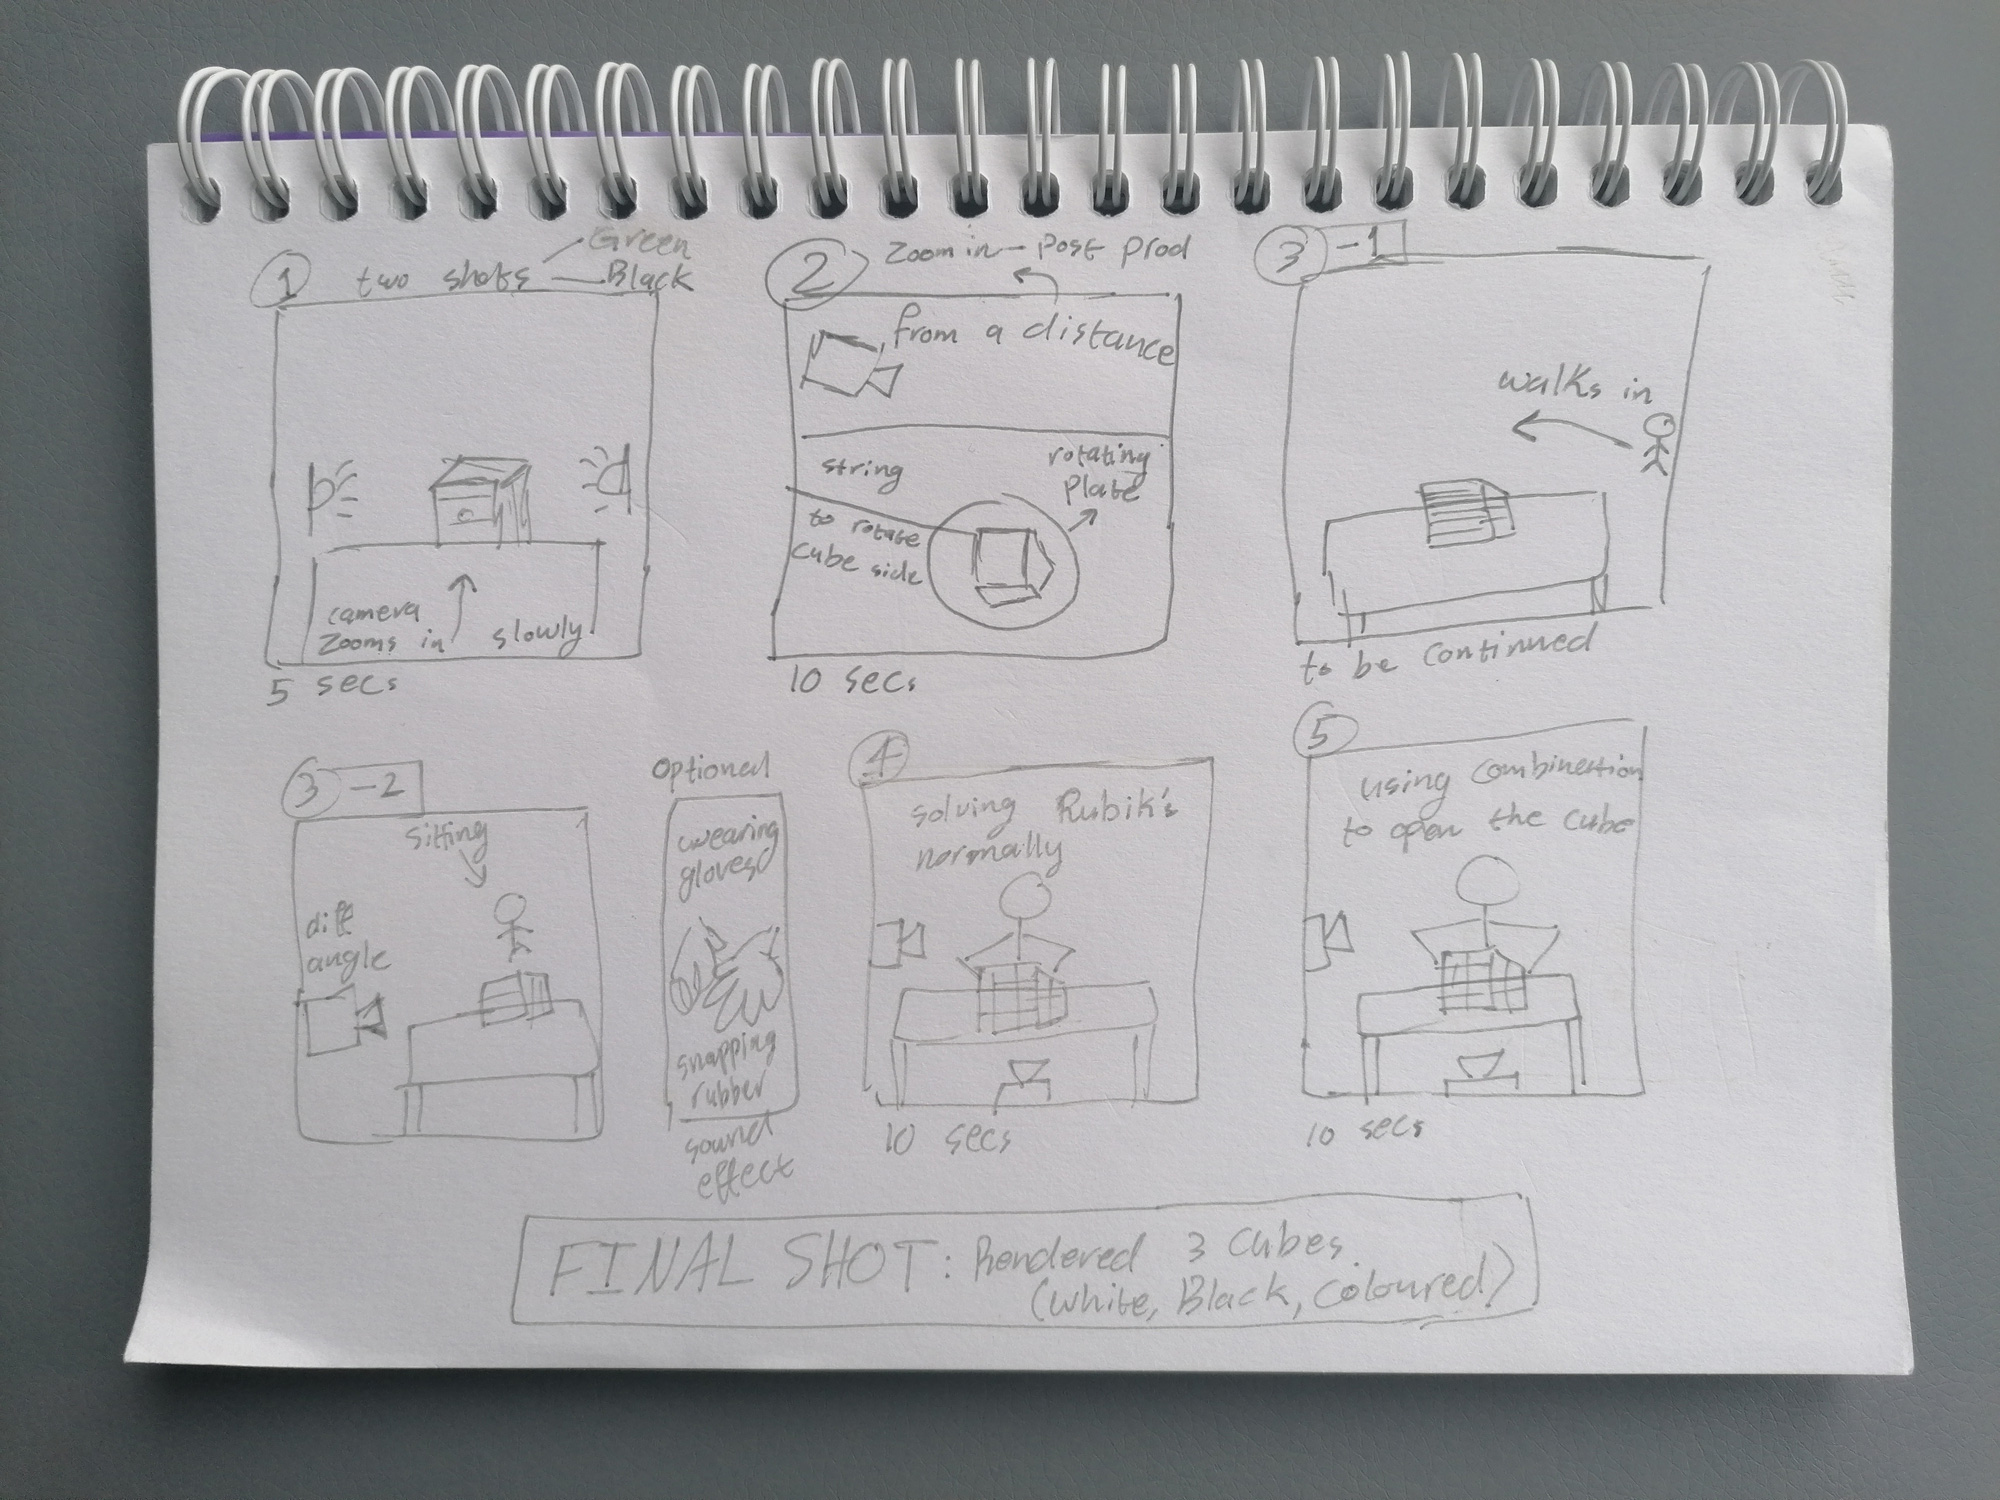 1
two shots
Green
Black
camera
zooms in slowly
5 secs
2
Zoom in - Post prod
from a distance
string
to rotate
cube side
rotating
plate
10 secs
3 -1
walks in
to be continued
3 -2
sitting
diff
angle
Optional
wearing
gloves
snapping
rubber
sound
effect
4
solving Rubik's
normally
10 secs
5
using combination
to open the cube
10 secs
FINAL SHOT: Rendered 3 cubes
(White, Black, coloured)